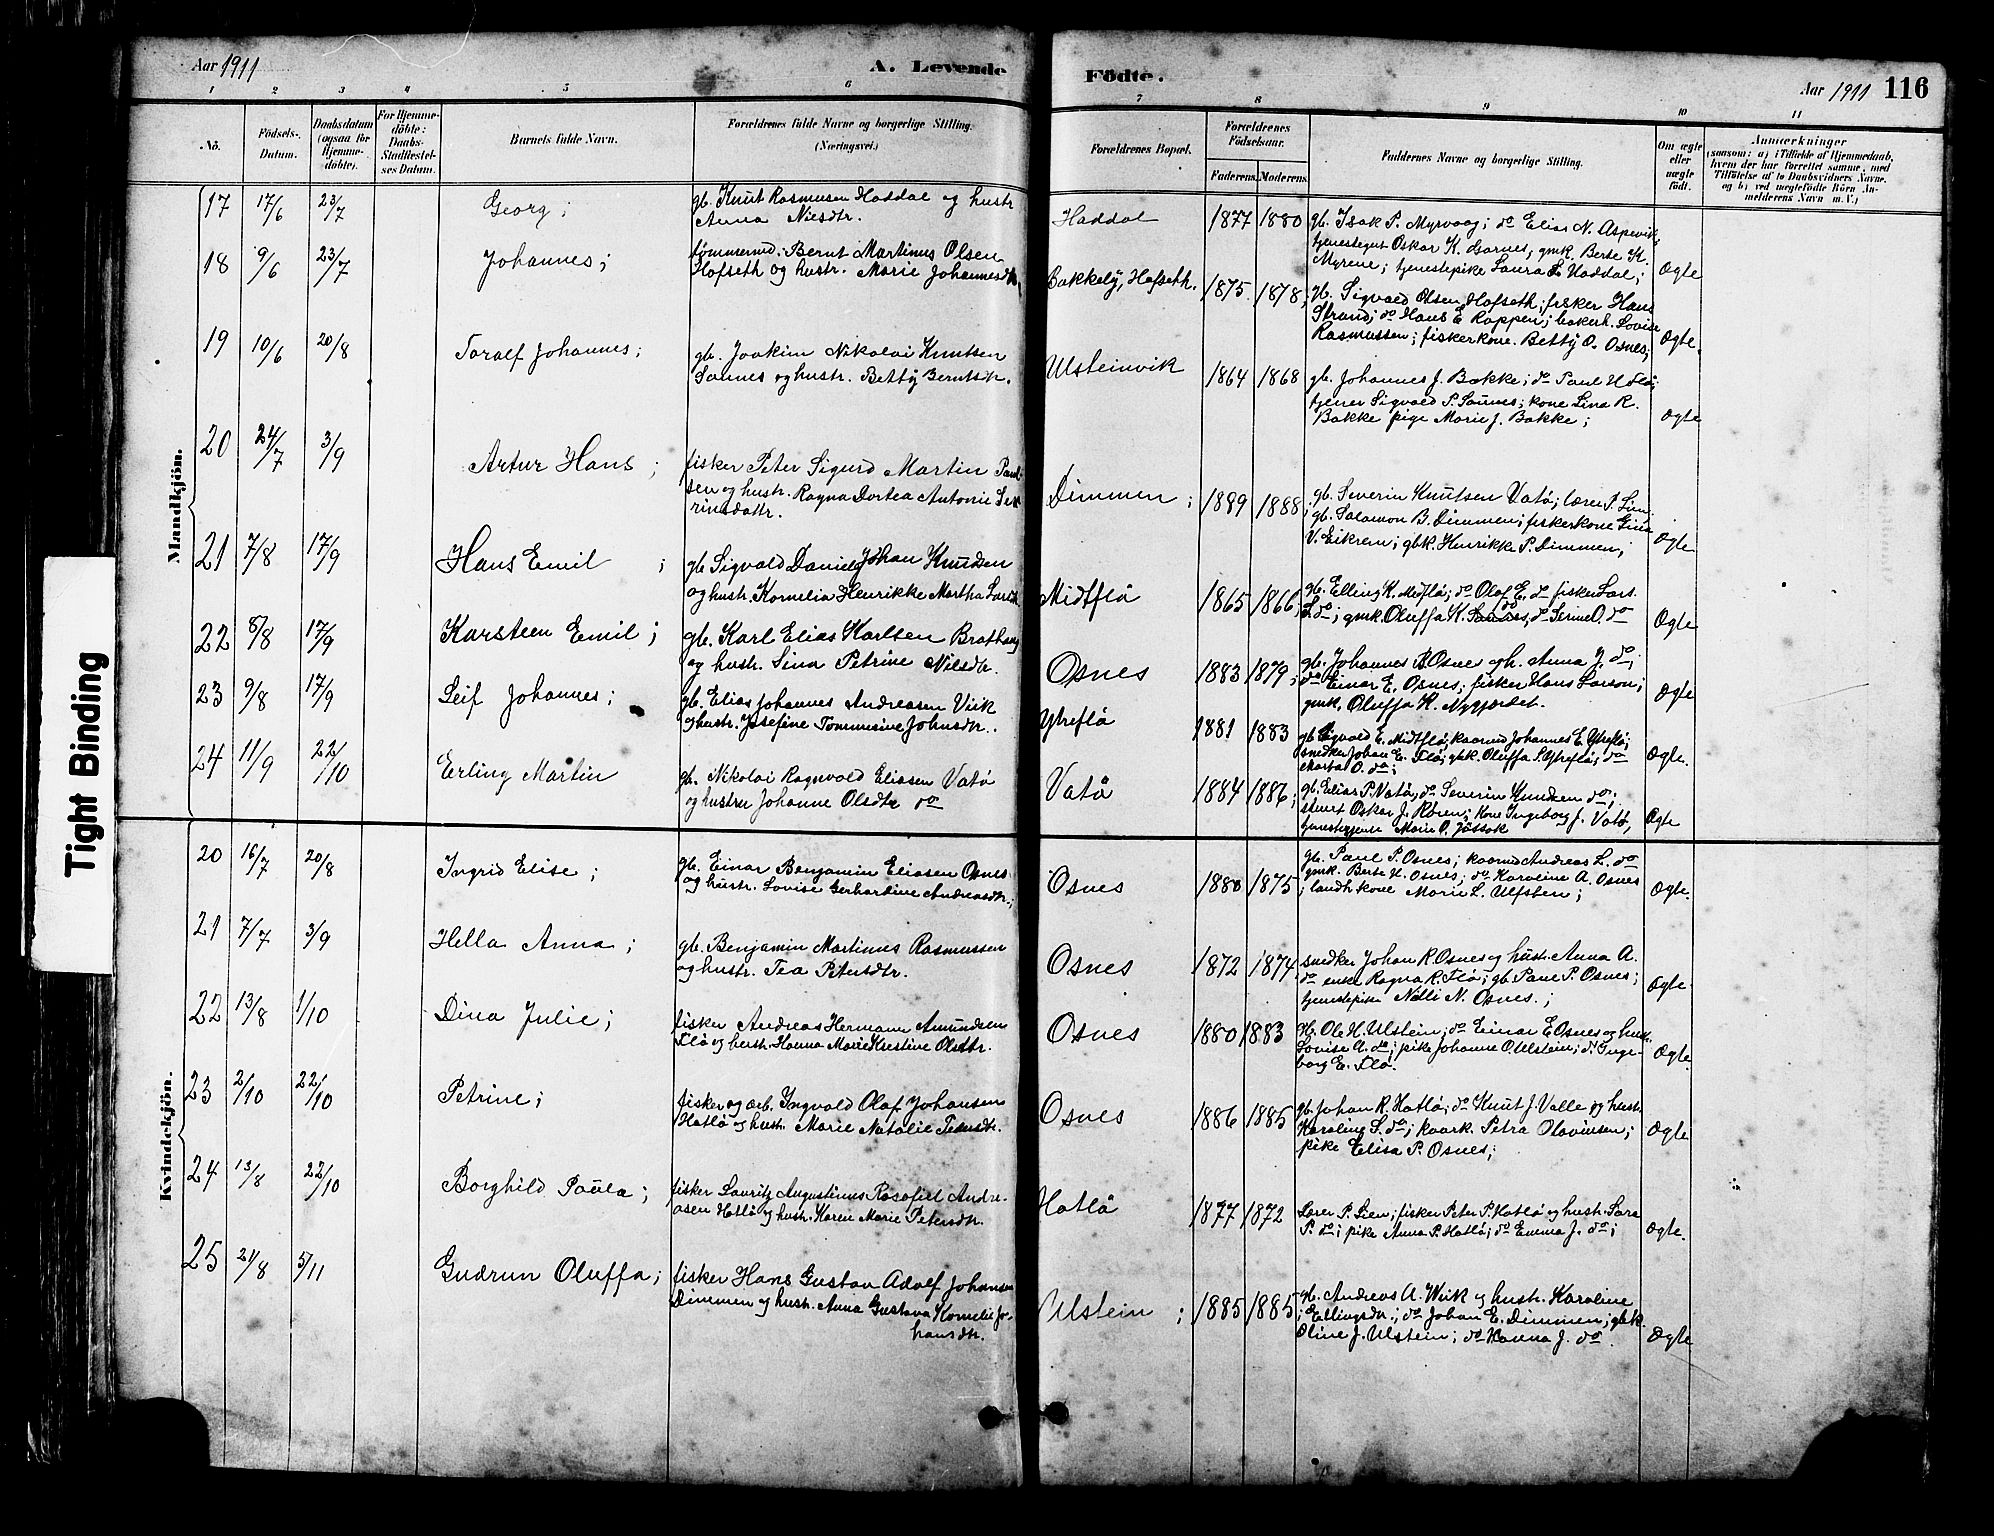 Aar 1911
A. Levende
Födte.
Aar 1911
116
1 2 3 4 5 6 7 8 9 10 11
No.
Födsels-
Datum.
Daabsdatum
(ogsaa for
Hjemme-
döbte).
For Hjemme-
döbte:
Daabs-
Stadfæstel-
ses Datum.
Barnets fulde Navn.
Forældrenes fulde Navne og borgerlige Stilling.
(Næringsvei.)
Forældrenes Bopæl.
Forældrenes
Födselsaar.
Faderens. Moderens.
Faddernes Navne og borgerlige Stilling.
Om ægte
eller
uægte
födt.
Anmærkninger
(saasom: a) i Tilfælde af Hjemmedaab,
hvem der har forrettet samme, med
Tilföielse af to Daabsvidners Navne.
og b) ved uægtefödte Börn An-
melderens Navn m. V.)
Mandkjön.
17 17/6 23/7 Georg;
gb. Knut Rasmussen Haddal og hustr
Anna Nilsdtr.
Haddal 1877 1880
gb. Isak P. Myrvaag; do Elias N. Aspevik;
tjenestegut Oskar K. Garnes, gmk. Berte K.
Myrene; tjenestepike Laura L. Haddal;
Ægte
18 9/6 23/7 Johannes;
tømmermd. Bernt Martinus Olsen
Hofseth og hustr. Marie Johannesdtr
Bakkely, Hofseth. 1875 1878
gb. Sigvald Olsen Hofseth; fisker Hans
Strand; do Hans E. Roppen; bakerh. Lovise
Rasmussen; fiskerkone Betty O. Osnes;
Ægte.
19 10/6 20/8 Toralf Johannes;
gb. Joakim Nikolai Knutsen
Saunes og hustr. Betty Berntsdtr.
Ulsteinvik 1864 1868
gb. Johannes J. Bakke; do Paul H. Flø;
tjener Sigvald P. Saunes; kone Lina R.
Bakke pige Marie J. Bakke;
Ægte
20 24/7 3/9 Artur Hans;
fisker Peter Sigurd Martin Paul-
sen og hustr. Ragna Dortea Antonie Seve
rinsdattr.
Dimmen; 1889 1888
gb. Severin Knutsen Vatø; lærer P. Lien;
gb. Salamon B. Dimmen; fiskerkone Gina
V. Eikrem; gbk. Henrikke P. Dimmen;
Ægte
21 7/8 17/9 Hans Emil;
gb. Sigvald Daniel Johan Knudsen
og hustr. Kornelia Henrikke Martha Larsdtr
Midtflø 1865 1866
gb. Elling K. Midtflø; do Olaf E. do fisker Lars
L. do; gmk. Oluffa K. Sandnes, do Serine O. do
Ægte
22 8/8 17/9 Karsteen Emil;
gb. Karl Elias Karlsen Brathaug
og hustr. Lina Petrine Nilsdtr.
Osnes 1883 1879;
gb. Johannes B. Osnes og h. Anna J. do;
do Einar E. Osnes; fisker Hans Larson;
gmk. Oluffa H. Nygjerdet.
Ægte
23 9/8 17/9 Leif Johannes;
gb. Elias Johannes Andreasen Viik
og hustr. Josefine Tommesine Johnsdtr.
Ytreflø 1881 1883
gb. Sigvald E. Midtflø; kaarmd Johannes E. Ytreflø;
snedker Johan E. Flø; gbk. Oluffa S. Ytreflø; do
Marta O. do;
Ægte.
24 11/9 22/10 Erling Martin
gb. Nikolai Ragnvald Eliasen Vatø
og hustru Johanne Olsdtr do
Vatø 1884 1886;
gb. Elias P. Vatø, do Severin Knudsen do;
stuert Oskar J. Røren; Kone Ingeborg J. Vatø,
tjenestepige Marie O. Jøssok
Ægte
Kvindekjön.
20 16/7 20/8 Ingrid Elise;
gb. Einar Benjamin Eliasen Osnes
og hustr. Lovise Gerhardine Andreasdtr.;
Osnes 1880 1875
gb. Paul P. Osnes; kaarmd Andreas L. do
gmk. Berte H. Osnes; do Karoline A. Osnes
; landh. kone Marie L. Ulfsten;
Ægte.
21 7/7 3/9 Hella Anna;
gb. Benjamin Martinus Rasmussen
og hustr. Tea Petersdtr.
Osnes 1872 1874
snedker Johan R. Osnes og hustr. Anna A.
do enke Ragna R. Flø; gb. Paul P. Osnes;
tjenestepike Nelli N. Osnes.;
Ægte.
22 13/8 1/10 Dina Julie;
fisker Andreas Hermann Amundsen
Flø og hustr. Hanna Marie Kristine Olsdtr.
Osnes 1880 1883
gb. Ole H. Ulstein; do Einar E. Osnes og hustr.
Lovise A. do; pike Johanne O. Ulstein; do Inge-
borg E. Flø.
Ægte.
23 2/10 22/10 Petrine;
fisker og arb. Ingvald Olaf Johansen
Hatlø og hustr. Marie Natalie Petersdtr.
Osnes 1886 1885
gb. Johan R. Hatlø; do Knut J. Valle og hustr.
Karoline S. do; kaark. Petra Olavinsen;
pike Elisa P. Osnes;
Ægte
24 13/8 22/10 Borghild Paula;
fisker Lauritz Augustinus Rasafiel Andre-
asen Hatlø og hustr. Karen Marie Petersdtr.
Hatlø 1877 1872
Lærer P. Lien; fisker Peter P. Hatlø og hustr. Lara
P. do; pike Anna P. Hatlø; do Emma J. do;
Ægte.
25 21/8 5/11 Gudrun Oluffa;
fisker Hans Gustav Adolf Johansen
Dimmen og hustr. Anna Gustava Kornelie Jo-
hansdtr.
Ulstein; 1885 1885
gb. Andreas A. Wiik og hustr. Karoline
; Ellingsdtr.; do Johan E. Dimmen; gbk.
Oline J. Ulstein; do Hanna J. do
Ægte
Tight Binding